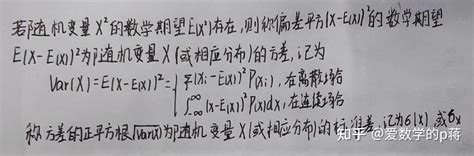 若随机变量X²的数学期望E(X²)存在,则称偏差平方(X-E(X))²的数学期望
E(X-E(X))²为随机变量X(或相应分布)的方差,记为
Var(X)=E(X-E(X))²={ Σᵢ(xᵢ-E(X))²P(xᵢ),在离散场合
∫_{-∞}^{∞}(x-E(X))²P(x)dx,在连续场合
称方差的正平方根√Var(X)为随机变量X(或相应分布)的标准差,记为σ(X),或σₓ
知乎 @爱数学的p蒋